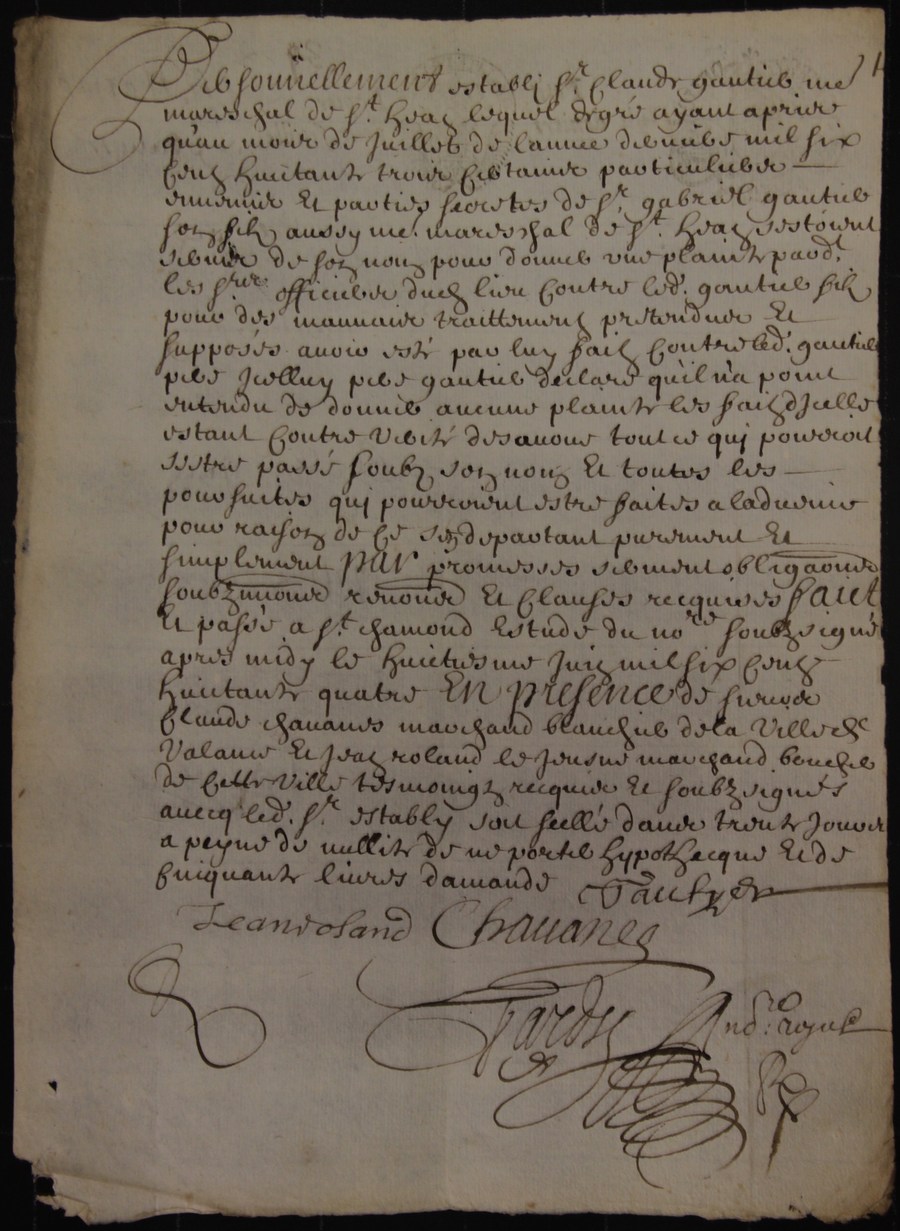 Personnellement establj sr. Claude gautier me
mareschal de st. Hean lequel de gré ayant aprins
qu'au moins de Juillet de l'annee derniere mil six
cens huictante trois certains particuliers
ennemis et parties secretes de sr. gabriel gautier
son filz aussy me. mareschal de st. Hean sestoient
servis de son nom pour donner une plainte pard.t
les srs officiers dud lieu contre led. gautier filz
pour des mauvais traittements pretendus et
supposés avoir esté par luy faitz contre led. gautier
pere Icelluy pere gautier declare qu'il n'a point
entendu de donner aucune plainte les faitz d'Icelle
estant contre verité desavoue tout ce qui pourroit
sestre passé soubz son nom et toutes les
poursuites qui pourroient estre faites a ladvenir
pour raison de ce sen departant purement et
simplement par promesses serment obligaons
soubzmions renons et clauses recquises faict
et passé a st. chamond estude du nore soubzsigné
apres midy le huictiesme Juin mil six cens
huictante quatre en presence de sieurs
Claude chavanes marchand blanchier de la ville de
Valance et Jean roland le Jeusne marchand boucher
de cette ville tesmoingz recquis et soubzsignés
avecq led. sr. establj soit scellé dans trente Jours
a peyne de nullité de ne porter hypothecque et de
cinquante livres damande Gautyer
Jean roland Chavanes
nore royal